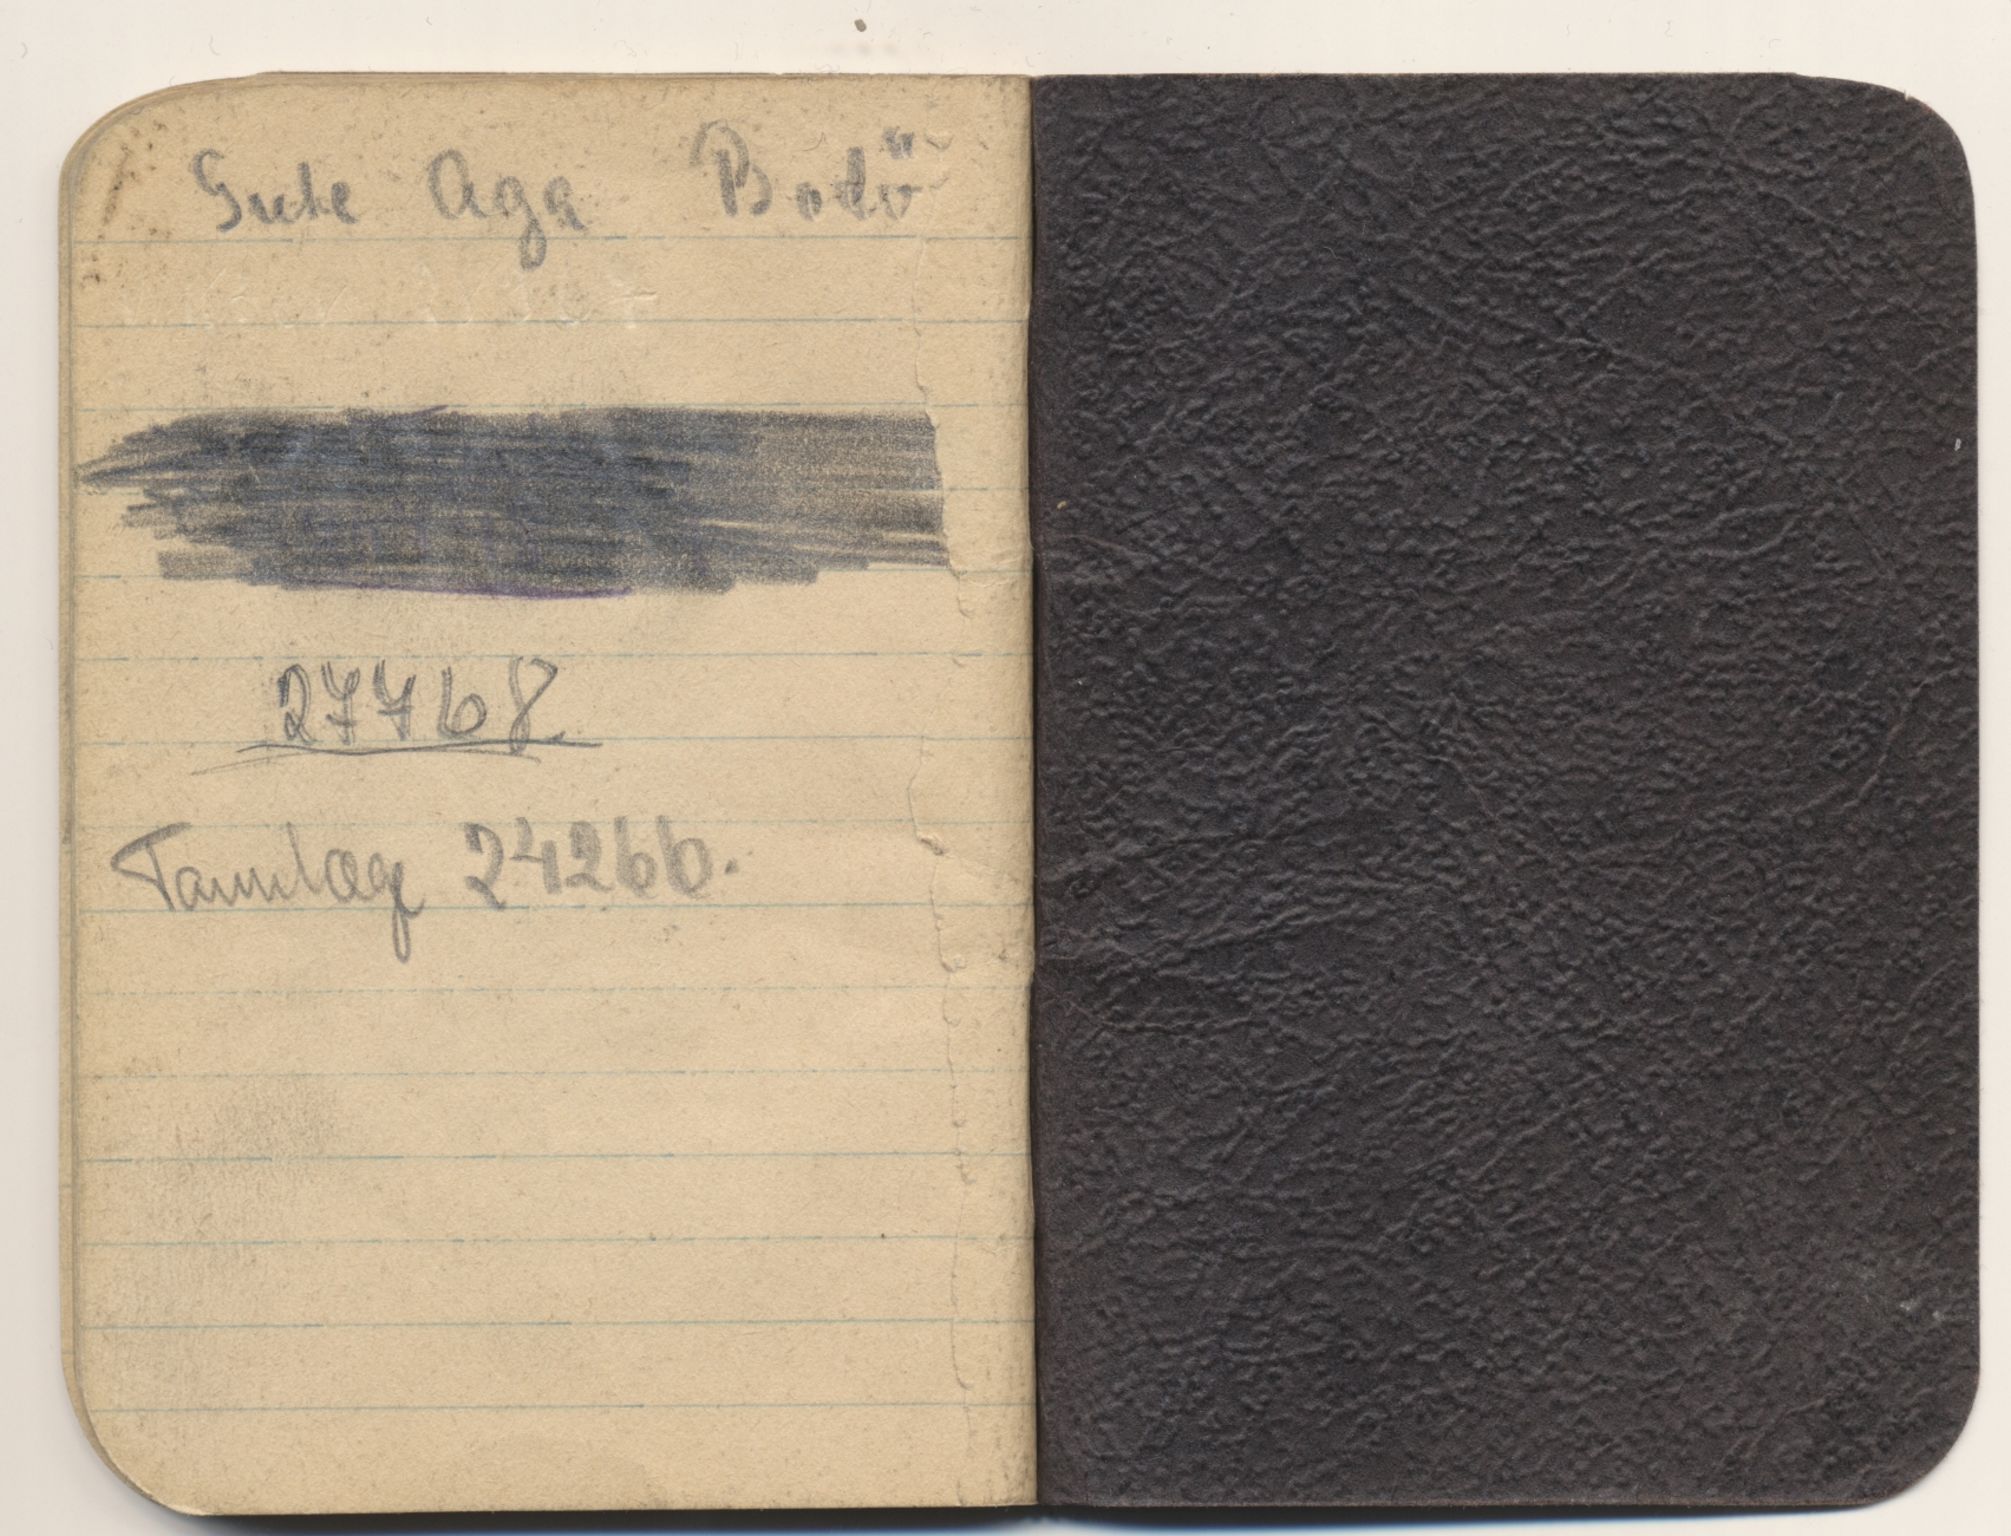 Gute Aga Bodö
27768
Tannlæge 24266.